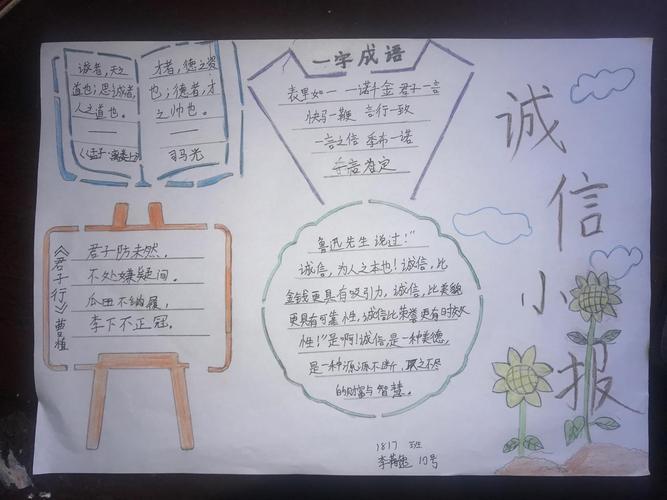 诚信小报
诚者，天之
道也；思诚者，
人之道也。
——
《孟子·离娄上》
才者，德之资
也；德者，才
之帅也。
——
司马光
一字成语
表里如一 一诺千金 君子一言
快马一鞭 言行一致
一言之信 季布一诺
《君子行》曹植
君子防未然，
不处嫌疑间。
瓜田不纳履，
李下不正冠。
鲁迅先生说过！"
诚信，为人之本也！诚信，比
金钱更具有吸引力，诚信，比美貌
更具有可靠性，诚信比荣誉更有时效
性！"是啊！诚信是一种美德，
是一种源源不断，取之不尽
的财富与智慧。
1817 班
李 10号